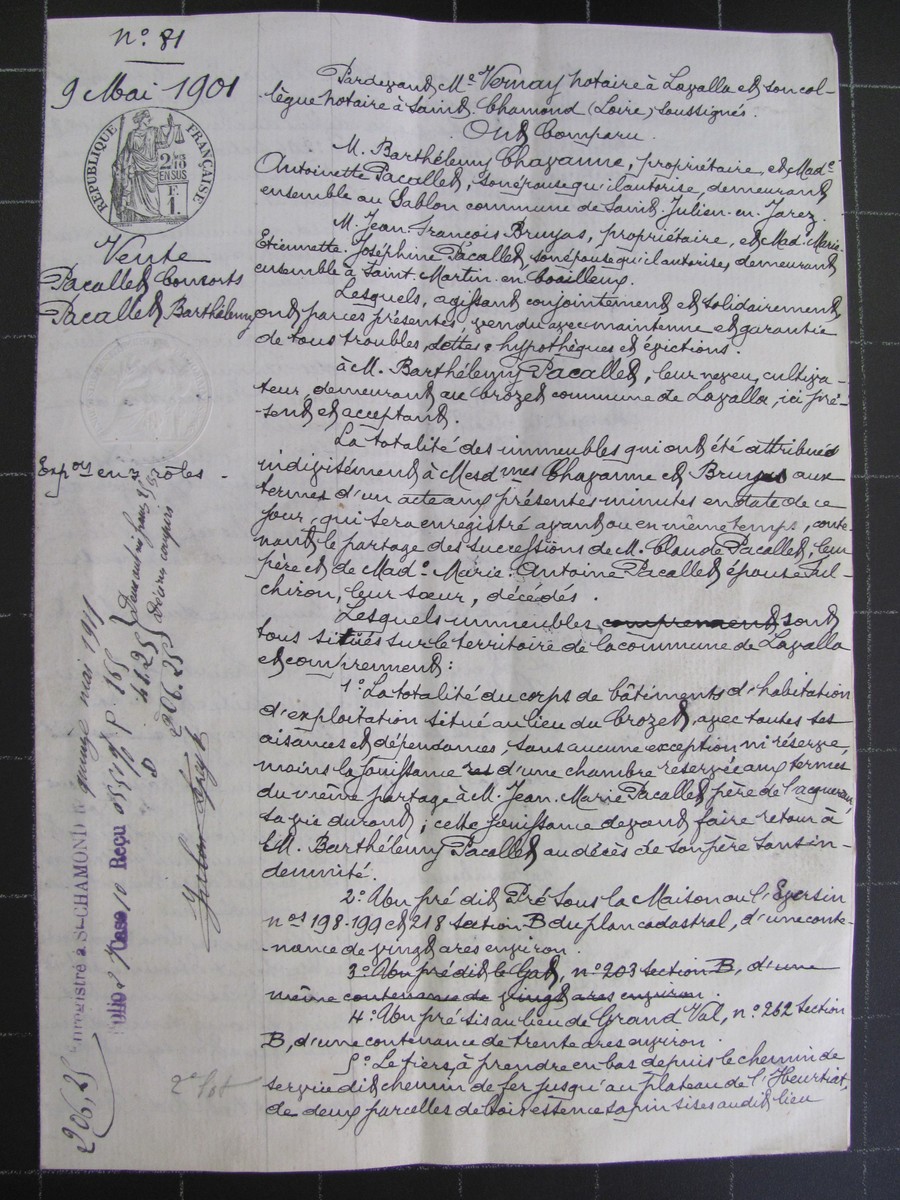 n° 81
9 Mai 1901
RÉPUBLIQUE FRANÇAISE
2/10
EN SUS
F.
1.
Vente
Pacallet Consorts
Pacallet Barthélemy
Expon en 3 rôles
Pardevant Me Vernay notaire à Lavalla et son col-
-lègue notaire à Saint-Chamond (Loire) soussignés.
Ont Comparu
M. Barthélemy Chavanne, propriétaire, et Made
Antoinette Pacallet, son épouse qu'il autorise, demeurant
ensemble au Sablon commune de Saint-Julien-en-Jarez.
M. Jean-François Bruyas, propriétaire, et Made Marie-
Etiennette-Joséphine Pacallet, son épouse qu'il autorise, demeurant
ensemble à Saint-Martin-en-Coailleux.
Lesquels, agissant conjointement et solidairement
ont par ces présentes, vendu avec maintenue et garantie
de tous troubles, dettes, hypothèques et évictions.
à M. Barthélemy Pacallet, leur neveu, cultiva-
teur, demeurant au Crozet commune de Lavalla, ici pré-
-sent et acceptant.
La totalité des immeubles qui ont été attribués
indivisément à Mesdmes Chavanne et Bruyas aux
termes d'un acte aux présentes minutes en date de ce
jour, qui sera enregistré avant ou en même temps, conte-
nant le partage des successions de M. Claude Pacallet, leur
père et de Made Marie-Antoine Pacallet épouse Ful-
chiron, leur sœur, décédés.
Lesquels immeubles comprennent sont
tous situés sur le territoire de la commune de Lavalla
et comprennent:
1° La totalité du corps de bâtiments d'habitation
d'exploitation situé au lieu du Crozet, avec toutes ses
aisances et dépendances, sans aucune exception ni réserve,
moins la jouissance d'une chambre réservée aux termes
du même partage à M. Jean-Marie Pacallet père de l'acquéreur,
sa vie durant; cette jouissance devant faire retour à
M. Barthélemy Pacallet au décès de son père sans in-
demnité.
2° Un pré dit Pré sous la Maison ou l'
nos 198-199 et 218 section B du plan cadastral, d'une conte-
-nance de vingt ares environ.
3° Un pré dit le Gat, n° 203 section B, d'une
même contenance de vingt ares environ.
4° Un pré sis au lieu de Grand Val, n° 262 section
B, d'une contenance de trente ares environ.
5° Le tiers, à prendre en bas depuis le chemin de
service dit chemin de fer jusqu'au plateau de l'Heurtiat,
de deux parcelles de bois essence sapin sises audit lieu
Enregistré à St-CHAMOND le quinze mai 1901
Folio 2 Case 10 Reçu
206,25
2e lot